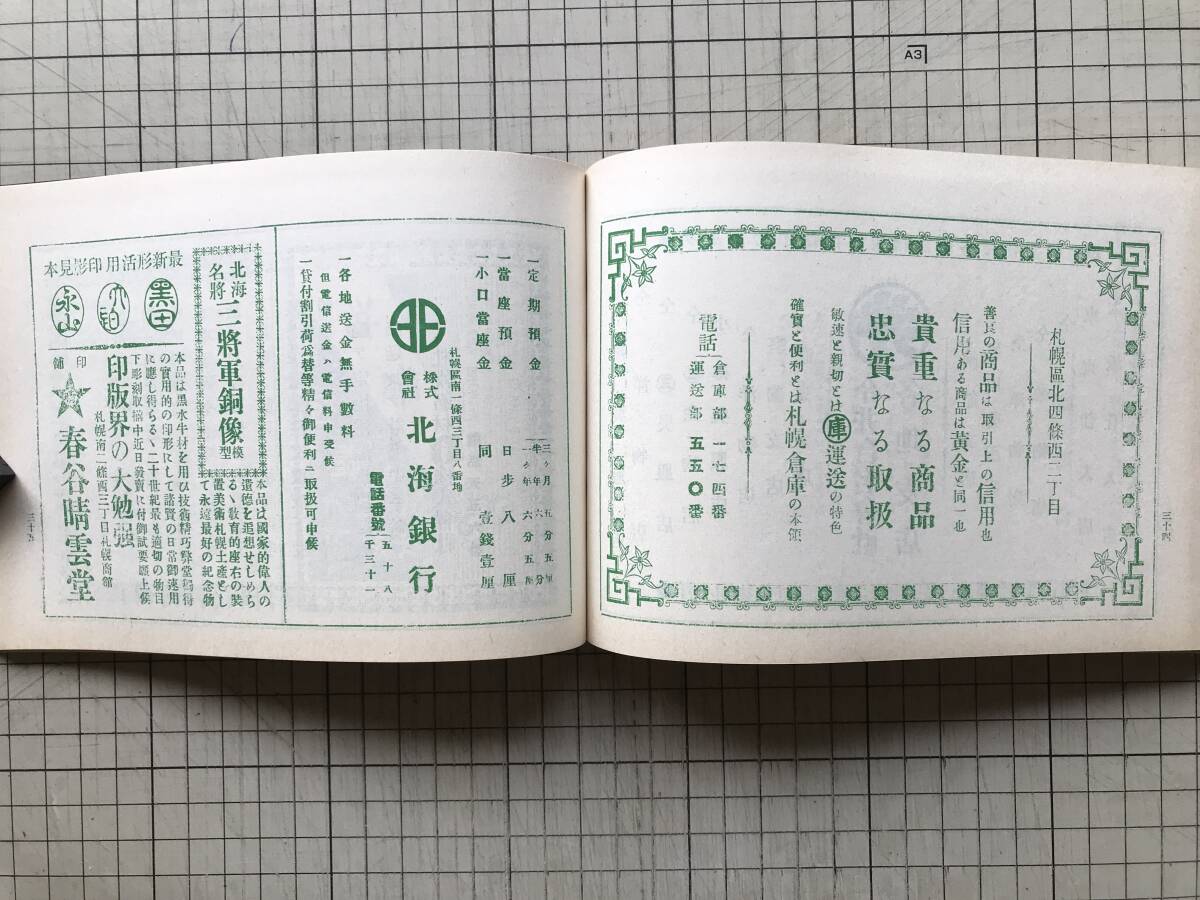 A3
札幌區北四條西二丁目
善良の商品は取引上の信用也
信用ある商品は黄金と同一也
貴重なる商品
忠實なる取扱
敏速と親切とは庫運送の特色
確實と便利とは札幌倉庫の本領
電話 倉庫部 一七四番
運送部 五五〇番
三十四
一定期預金 三ヶ月 五分五厘
半ヶ年 六分
一ヶ年 六分五厘
一當座預金 日歩八厘
一小口當座金 同 壹錢壹厘
札幌區南一條西三丁目八番地
株式會社 北海銀行
電話番號 五十八
千三十一
一各地送金無手數料
但電信送金ハ電信料申受候
一貸付割引荷爲替等精々御便利ニ取扱可申候
北海名將 三將軍銅像模型
本品は國家的偉人の
遺德を追想せしめら
るゝ敎育的座右の裝
置美術札幌土產とし
て永遠最好の紀念物
最新形活用印影見本
黑田
永山
本品は黑水牛材を用ひ技術精巧弊堂獨得
の實用的の印形にして諸賢の日常御連用
に應し得らるゝ二十世紀最も適切の物目
下彫刻取揃中近日發賣に付御試要願上候
印版界の大勉强
札幌南二條西三丁目札幌商館
印舖
春谷晴雲堂
三十五